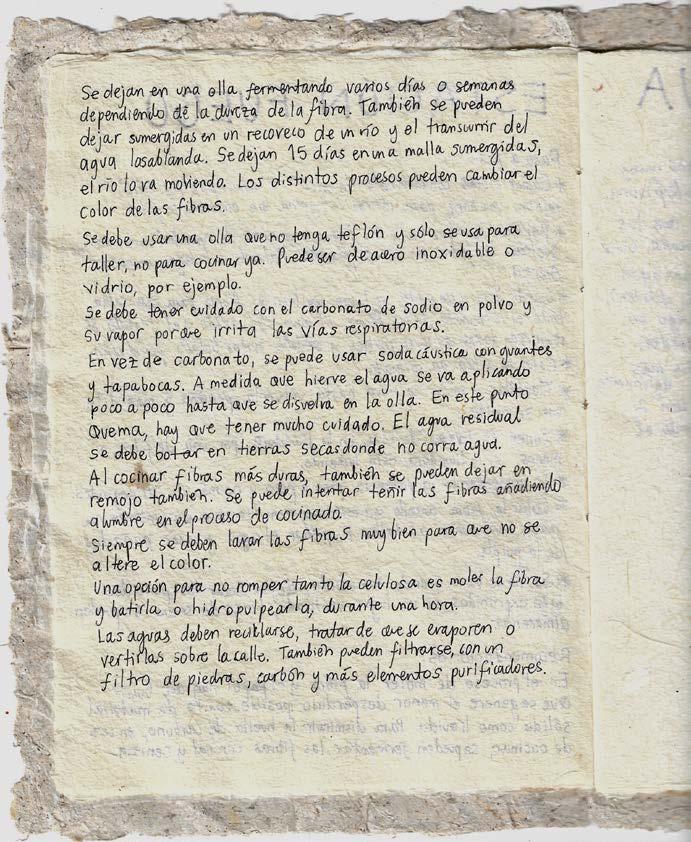 Se dejan en una olla fermentando varios días o semanas
dependiendo de la dureza de la fibra. También se pueden
dejar sumergidas en un recoveco de un río y el transcurrir del
agua las ablanda. Se dejan 15 días en una malla sumergidas,
el río lo va moviendo. Los distintos procesos pueden cambiar el
color de las fibras.
Se debe usar una olla que no tenga teflón y sólo se usa para
taller, no para cocinar ya. Puede ser de acero inoxidable o
vidrio, por ejemplo.
Se debe tener cuidado con el carbonato de sodio en polvo y
su vapor porque irrita las vías respiratorias.
En vez de carbonato, se puede usar soda cáustica con guantes
y tapabocas. A medida que hierve el agua se va aplicando
poco a poco hasta que se disuelva en la olla. En este punto
quema, hay que tener mucho cuidado. El agua residual
se debe botar en tierras secas donde no corra agua.
Al cocinar fibras más duras, también se pueden dejar en
remojo también. Se puede intentar teñir las fibras añadiendo
alumbre en el proceso de cocinado.
Siempre se deben lavar las fibras muy bien para que no se
altere el color.
Una opción para no romper tanto la celulosa es moler la fibra
y batirla o hidropulpearla, durante una hora.
Las aguas deben reciclarse, tratar de que se evaporen o
vertirlas sobre la calle. También pueden filtrarse, con un
filtro de piedras, carbón y más elementos purificadores.